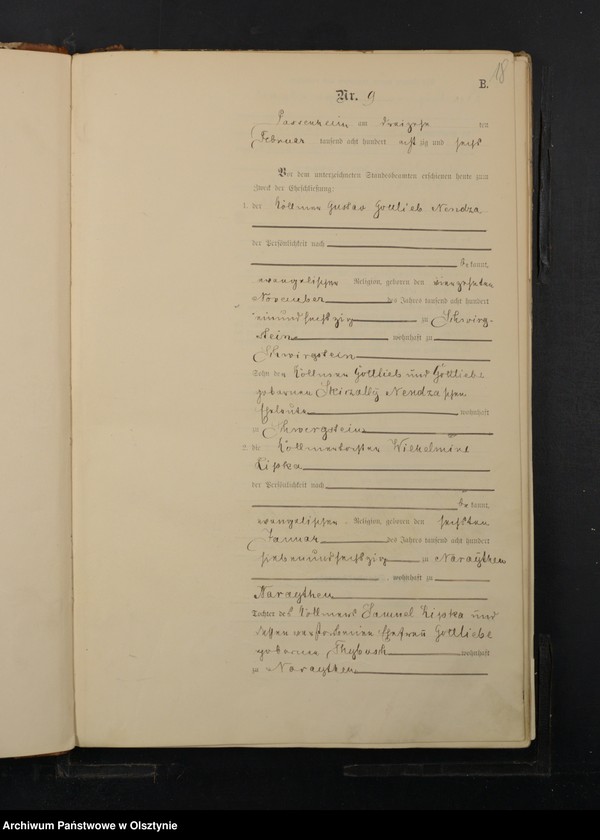 18
B.
Nr. 9
Passenheim am dreizehn ten
Februar tausend acht hundert acht zig und sechs
Vor dem unterzeichneten Standesbeamten erschienen heute zum
Zweck der Eheschließung:
1. der Köllmer Gustav Gottlieb Nendza
der Persönlichkeit nach
be kannt,
evangelischer Religion, geboren den vierzehnten
November des Jahres tausend acht hundert
einundsechszig zu Schwirg-
stein wohnhaft zu
Schwirgstein
Sohn der Köllmer Gottlieb und Gottliebe
geborenen Nendza schen
Eheleute wohnhaft
zu Schwirgstein
2. die Köllmertochter Wilhelmine
Lipka
der Persönlichkeit nach
be kannt,
evangelischer Religion, geboren den sechsten
Januar des Jahres tausend acht hundert
siebenundsechszig zu Naraythen
wohnhaft zu
Naraythen
Tochter des Köllmers Samuel Lipka und
dessen verstorbenen Ehefrau Gottliebe
geborene Thybusch wohnhaft
zu Naraythen
Archiwum Państwowe w Olsztynie